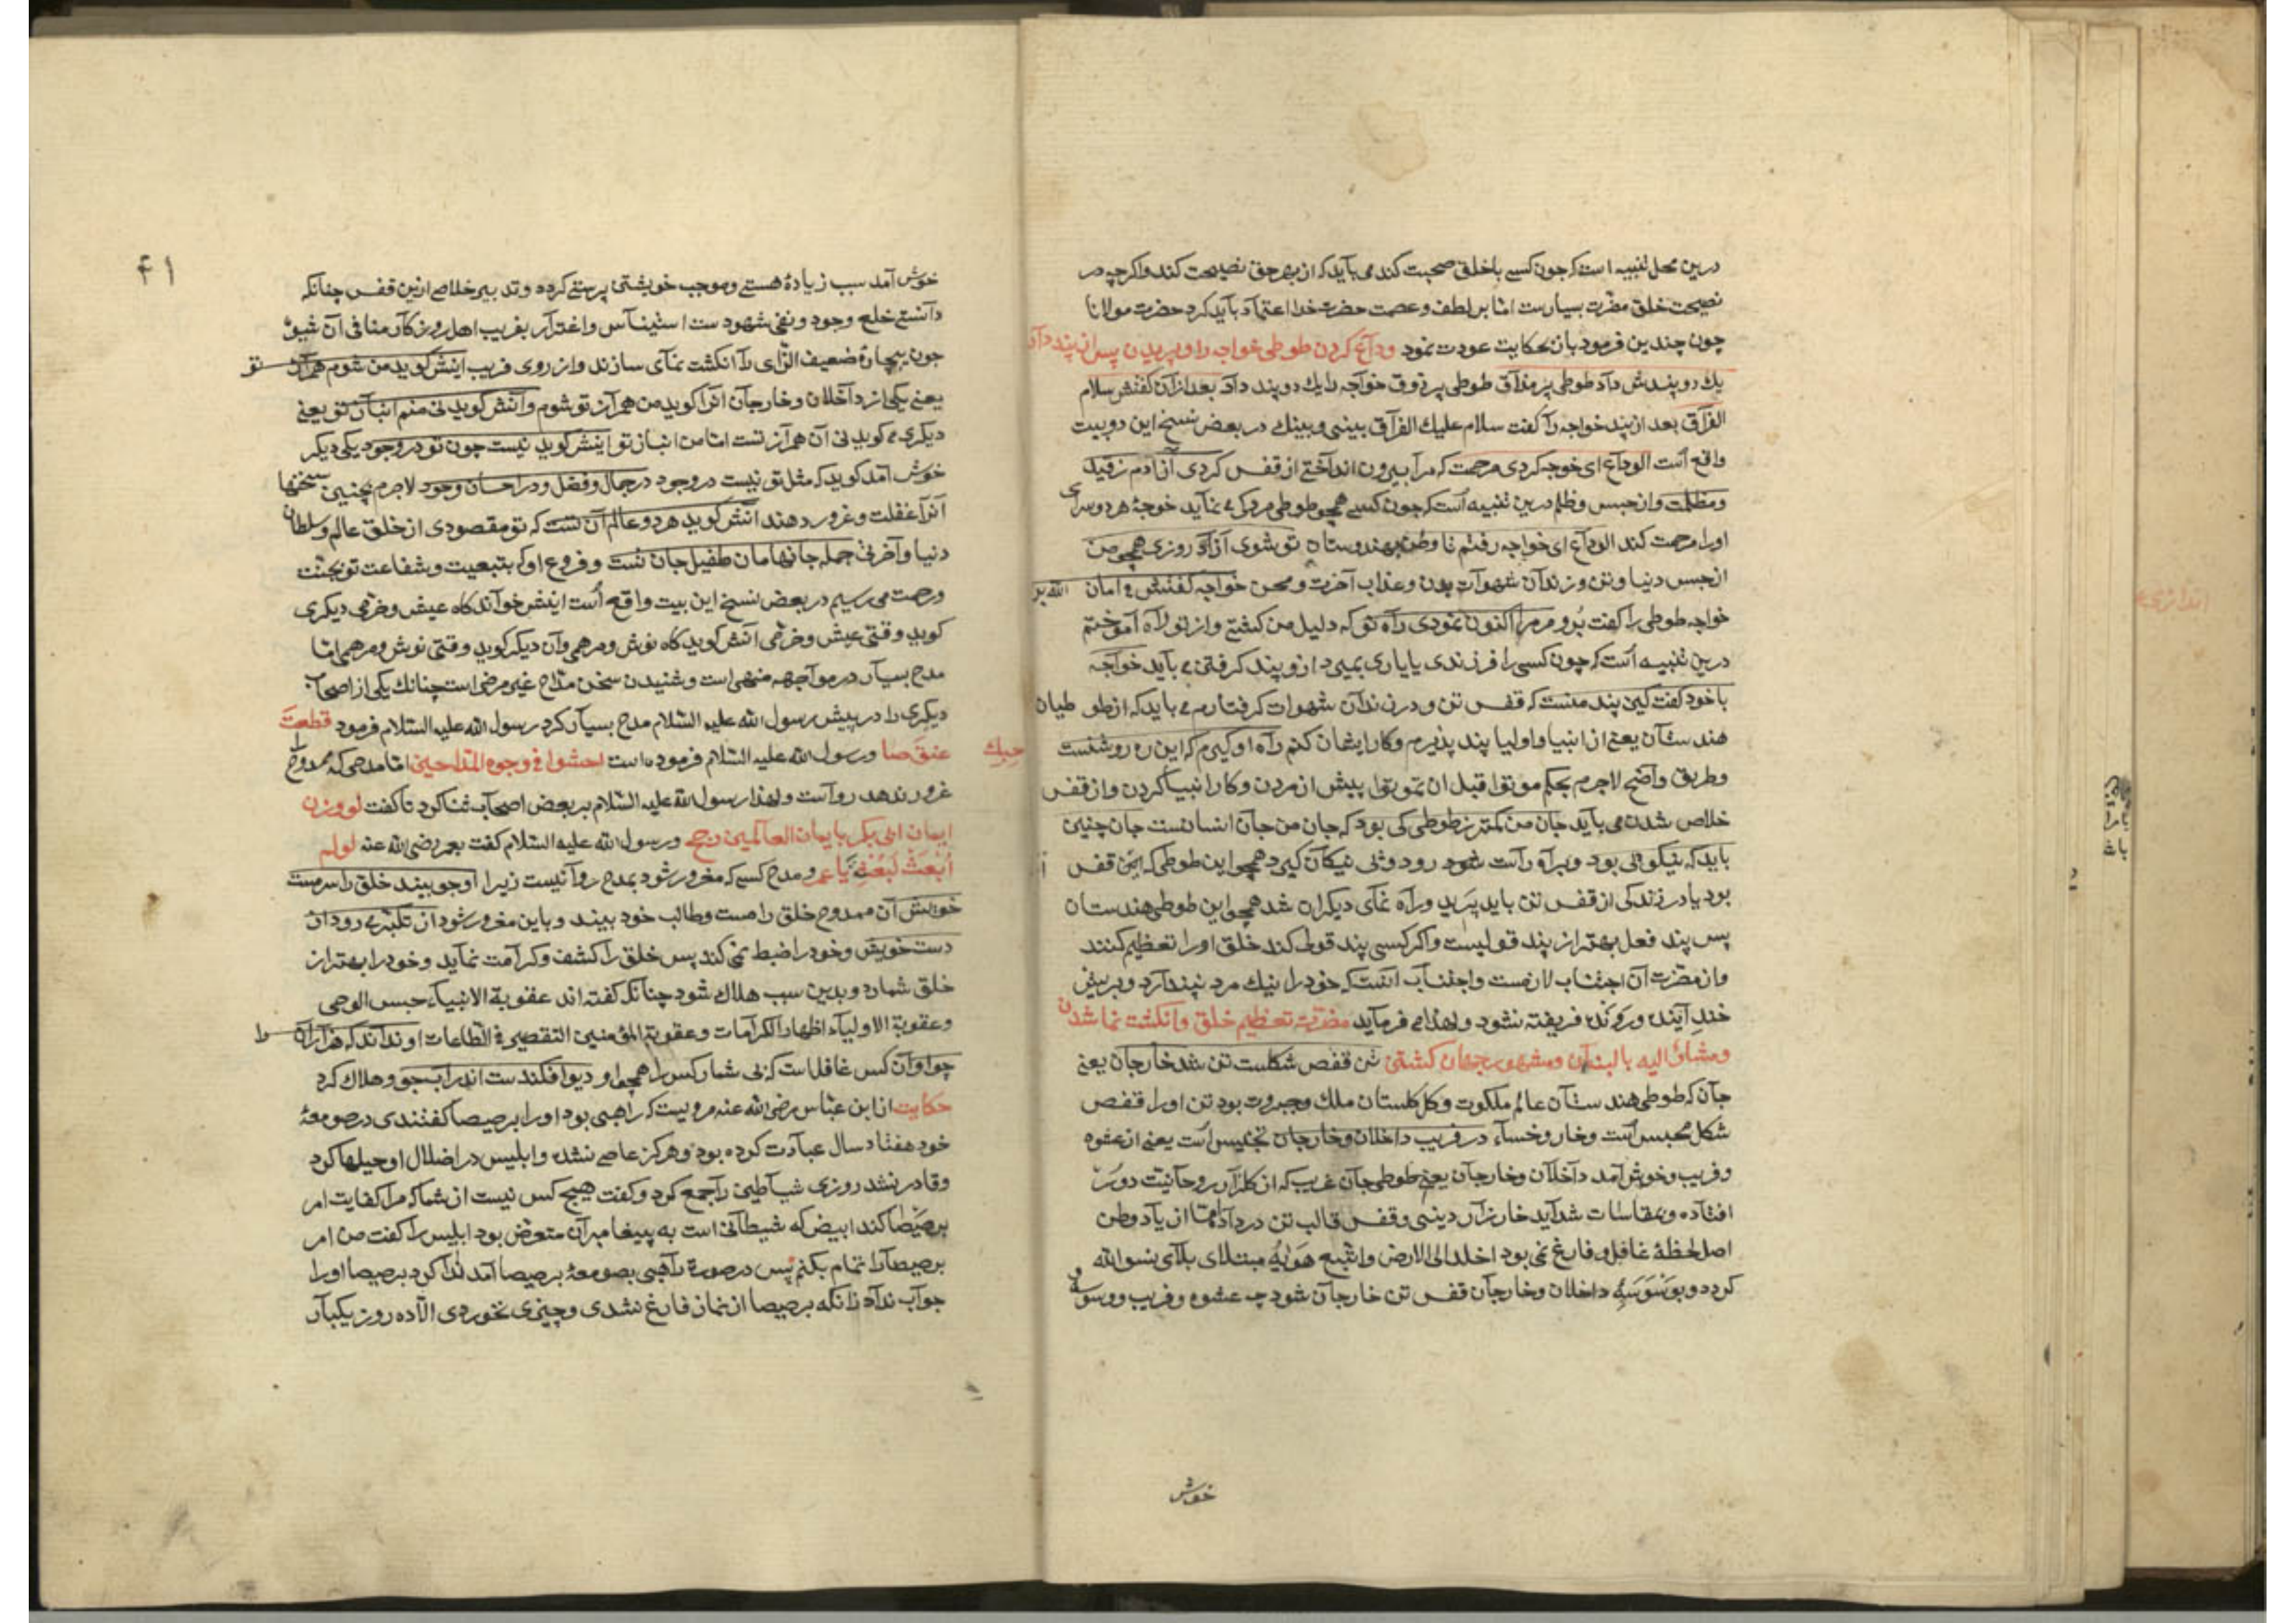 درین محل تنبیه است که چون کسی با خلق صحبت کند می باید که از بهر حق نصیحت کند و اکر چه در
نصیحت خلق مضرت بسیارست اما بر لطف و عصمت حضرت خدا اعتماد باید کرد حضرت مولانا
چون چندین فرمود بان حکایت عودت نمود وداع کردن طوطی خواجه را و پریدن پس از پند داد
یك دو پندش داد طوطی پر مذاق طوطی پر ذوق خواجه را یك دو پند داد بعد از آن کفتش سلام
الفراق بعد از پند خواجه را کفت سلام علیك الفراق بینی و بینك در بعض نسخ این دو بیت
واقع است الوداع ای خوجه کردی مرحمت که مرا بیرون انداختی از قفس کردی آزادم ز قید
و مظلمت و از حبس و ظلم درین تنبیه است که چون کسی همچو طوطی مرکی نماید خوجهٔ هر دو سرای
اورا مرحمت کند الوداع ای خواجه رفتم تا وطن بهندوستان تو شوی آزاد روزی همچو من
از حبس دنیا و تن و زندان شهوات بدن و عذاب آخرت و محن خواجه کفتش فی امان الله برو
خواجه طوطی را کفت برو مر مرا اکنون نمودی راه نو که دلیل من کشتی و از تو راه آموختم
درین تنبیه است که چون کسی را فرزندی یا یاری بمیرد ازو پند کرفتن می باید خواجه
با خود کفت کین پند منست که قفس تن و در زندان شهوات کرفتارم می باید که از طوطیان
هندستان یعنی از انبیا و اولیا پند پذیرم و کار ایشان کنم راه او کیرم که این ره روشنست
وطریق واضح لاجرم بحکم موتوا قبل ان تموتوا پیش از مردن و کار انبیا کردن و از قفس
خلاص شدن می باید جان من کمتر ز طوطی کی بود که جان من جان انسانست جان چنین
باید که نیکو پی بود و براه راست شود رود و پی نیکان کیرد همچو این طوطی که این قفس
بود یا در زندکی از قفس تن باید پرید و راه نمای دیکران شد همچو این طوطی هندستان
پس پند فعل بهتر از پند قولیست و اکر کسی پند قولی کند خلق اورا تعظیم کنند
و از مضرت آن اجتناب لازمست و اجتناب انست که خود را نیك مرد نپندارد و بر پیش
خند آینده و رونده فریفته نشود و لهذا می فرماید مضرت تعظیم خلق و انکشت نما شدن
و مشار الیه بالبنان و مشهور جهان کشتن تن قفص شکلست تن شد خار جان یعنی
جان که طوطی هندستان عالم ملکوت و کل کلستان ملك و جبروت بود تن اورا قفص
شکل محبس است و خار و خساء در فریب داخلان و خارجان تجنیس است یعنی از عشوه
و فریب و خوش آمد داخلان و خارجان یعنی طوطی جان غریب که از کلزار روحانیت دور
افتاده و بمقاسات شداید خارزار دینی و قفس قالب تن در داد اما از یاد وطن
اصل لحظهٔ غافل و فارغ نمی بود اخلد الی الارض واتبع هویه مبتلای بلای نسوا الله
کردد و بوسوسهٔ داخلان و خارجان قفس تن خار جان شود چه عشوه و فریب و وسوسه
خوش
۴۱
خوش آمد سبب زیادهٔ هستی و موجب خویشتن پرستی کرده و تدبیر خلاص ازین قفس چنانکه
دانستی خلع وجود و نفی شهود ست استیناس و اغترار بفریب اهل روزکار منافی آن شیوه
چون بیچارهٔ ضعیف الرای را انکشت نمای سازند و از روی فریب اینش کوید من شوم همراز تو
یعنی یکی از داخلان و خارجان انرا کوید من همراز تو شوم و آنش کوید نی منم انباز تو یعنی
دیکری می کوید نی آن همراز تست اما من انباز تو اینش کوید نیست چون تو در وجود یکی دیکر
خوش آمد کوید که مثل تو نیست در وجود در جمال و فضل و در احسان وجود لاجرم چنین سخنها
آنرا غفلت و غرور دهند آنش کوید هر دو عالم آن تست که تو مقصودی از خلق عالم و سلطان
دنیا و آخرتی جمله جانهامان طفیل جان تست و فروع او که بتبعیت و شفاعت تو بجنت
و رحمت می رسیم در بعض نسخ این بیت واقع است اینش خواند کاه عیش و خرمی دیکری
کوید وقتی عیش و خرمی آنش کوید کاه نوش و مرهمی و آن دیکر کوید وقتی نوش و مرهمی اما
مدح بسیار در مواجهه منهی است و شنیدن سخن مداح غیر مرضی است چنانك یکی از اصحاب
دیکری را در پیش رسول الله علیه السلام مدح بسیار کرد رسول الله علیه السلام فرمود قطعت
عنق صاحبك و رسول الله علیه السلام فرموده است احثوا فی وجوه المداحین اما مدحی که ممدوح را
غرور ندهد رواست و لهذا رسول الله علیه السلام بر بعض اصحاب ثنا کرد تا کفت لو وزن
ایمان ابی بکر بایمان العالمین رجح و رسول الله علیه السلام کفت بعمر رضی الله عنه لو لم
ابعث لبعثت یا عمر و مدح کسی که مغرور شود بمدح روا نیست زیرا او چو بیند خلق را سرمست
خویش آن ممدوح خلق را مست و طالب خود بیند و باین مغرور شود از تکبر می رود از
دست خویش و خود را ضبط نمی کند پس خلق را کشف و کرامت نماید و خود را بهتر از
خلق شمارد و بدین سبب هلاك شود چنانکه کفته اند عقوبة الانبیاء حبس الوحی
وعقوبة الاولیاء اظهار الکرامات وعقوبة المؤمنین التقصیر فی الطاعات او نداند که هزاران را
چو او آن کس غافل است که بی شمار کس را همچو او دیو افکندست اندر آب جو و هلاك کرد
حکایت از ابن عباس رضی الله عنه مرویست که راهبی بود اورا برصیصا کفتندی در صومعهٔ
خود هفتاد سال عبادت کرده بود و هرکز عاصی نشده و ابلیس در اضلال او حیلها کرد
و قادر نشد روزی شیاطین را جمع کرد و کفت هیچ کس نیست از شما که مرا کفایت امر
برصیصا کند ابیض که شیطانی است به پیغامبران متعرض بود ابلیس را کفت من امر
برصیصا را تمام بکنم پس در صورة راهبی بصومعهٔ برصیصا آمد ندا کرد برصیصا اورا
جواب نداد زانکه برصیصا از نماز فارغ نشدی و چیزی نخوردی الا ده روز یکبار